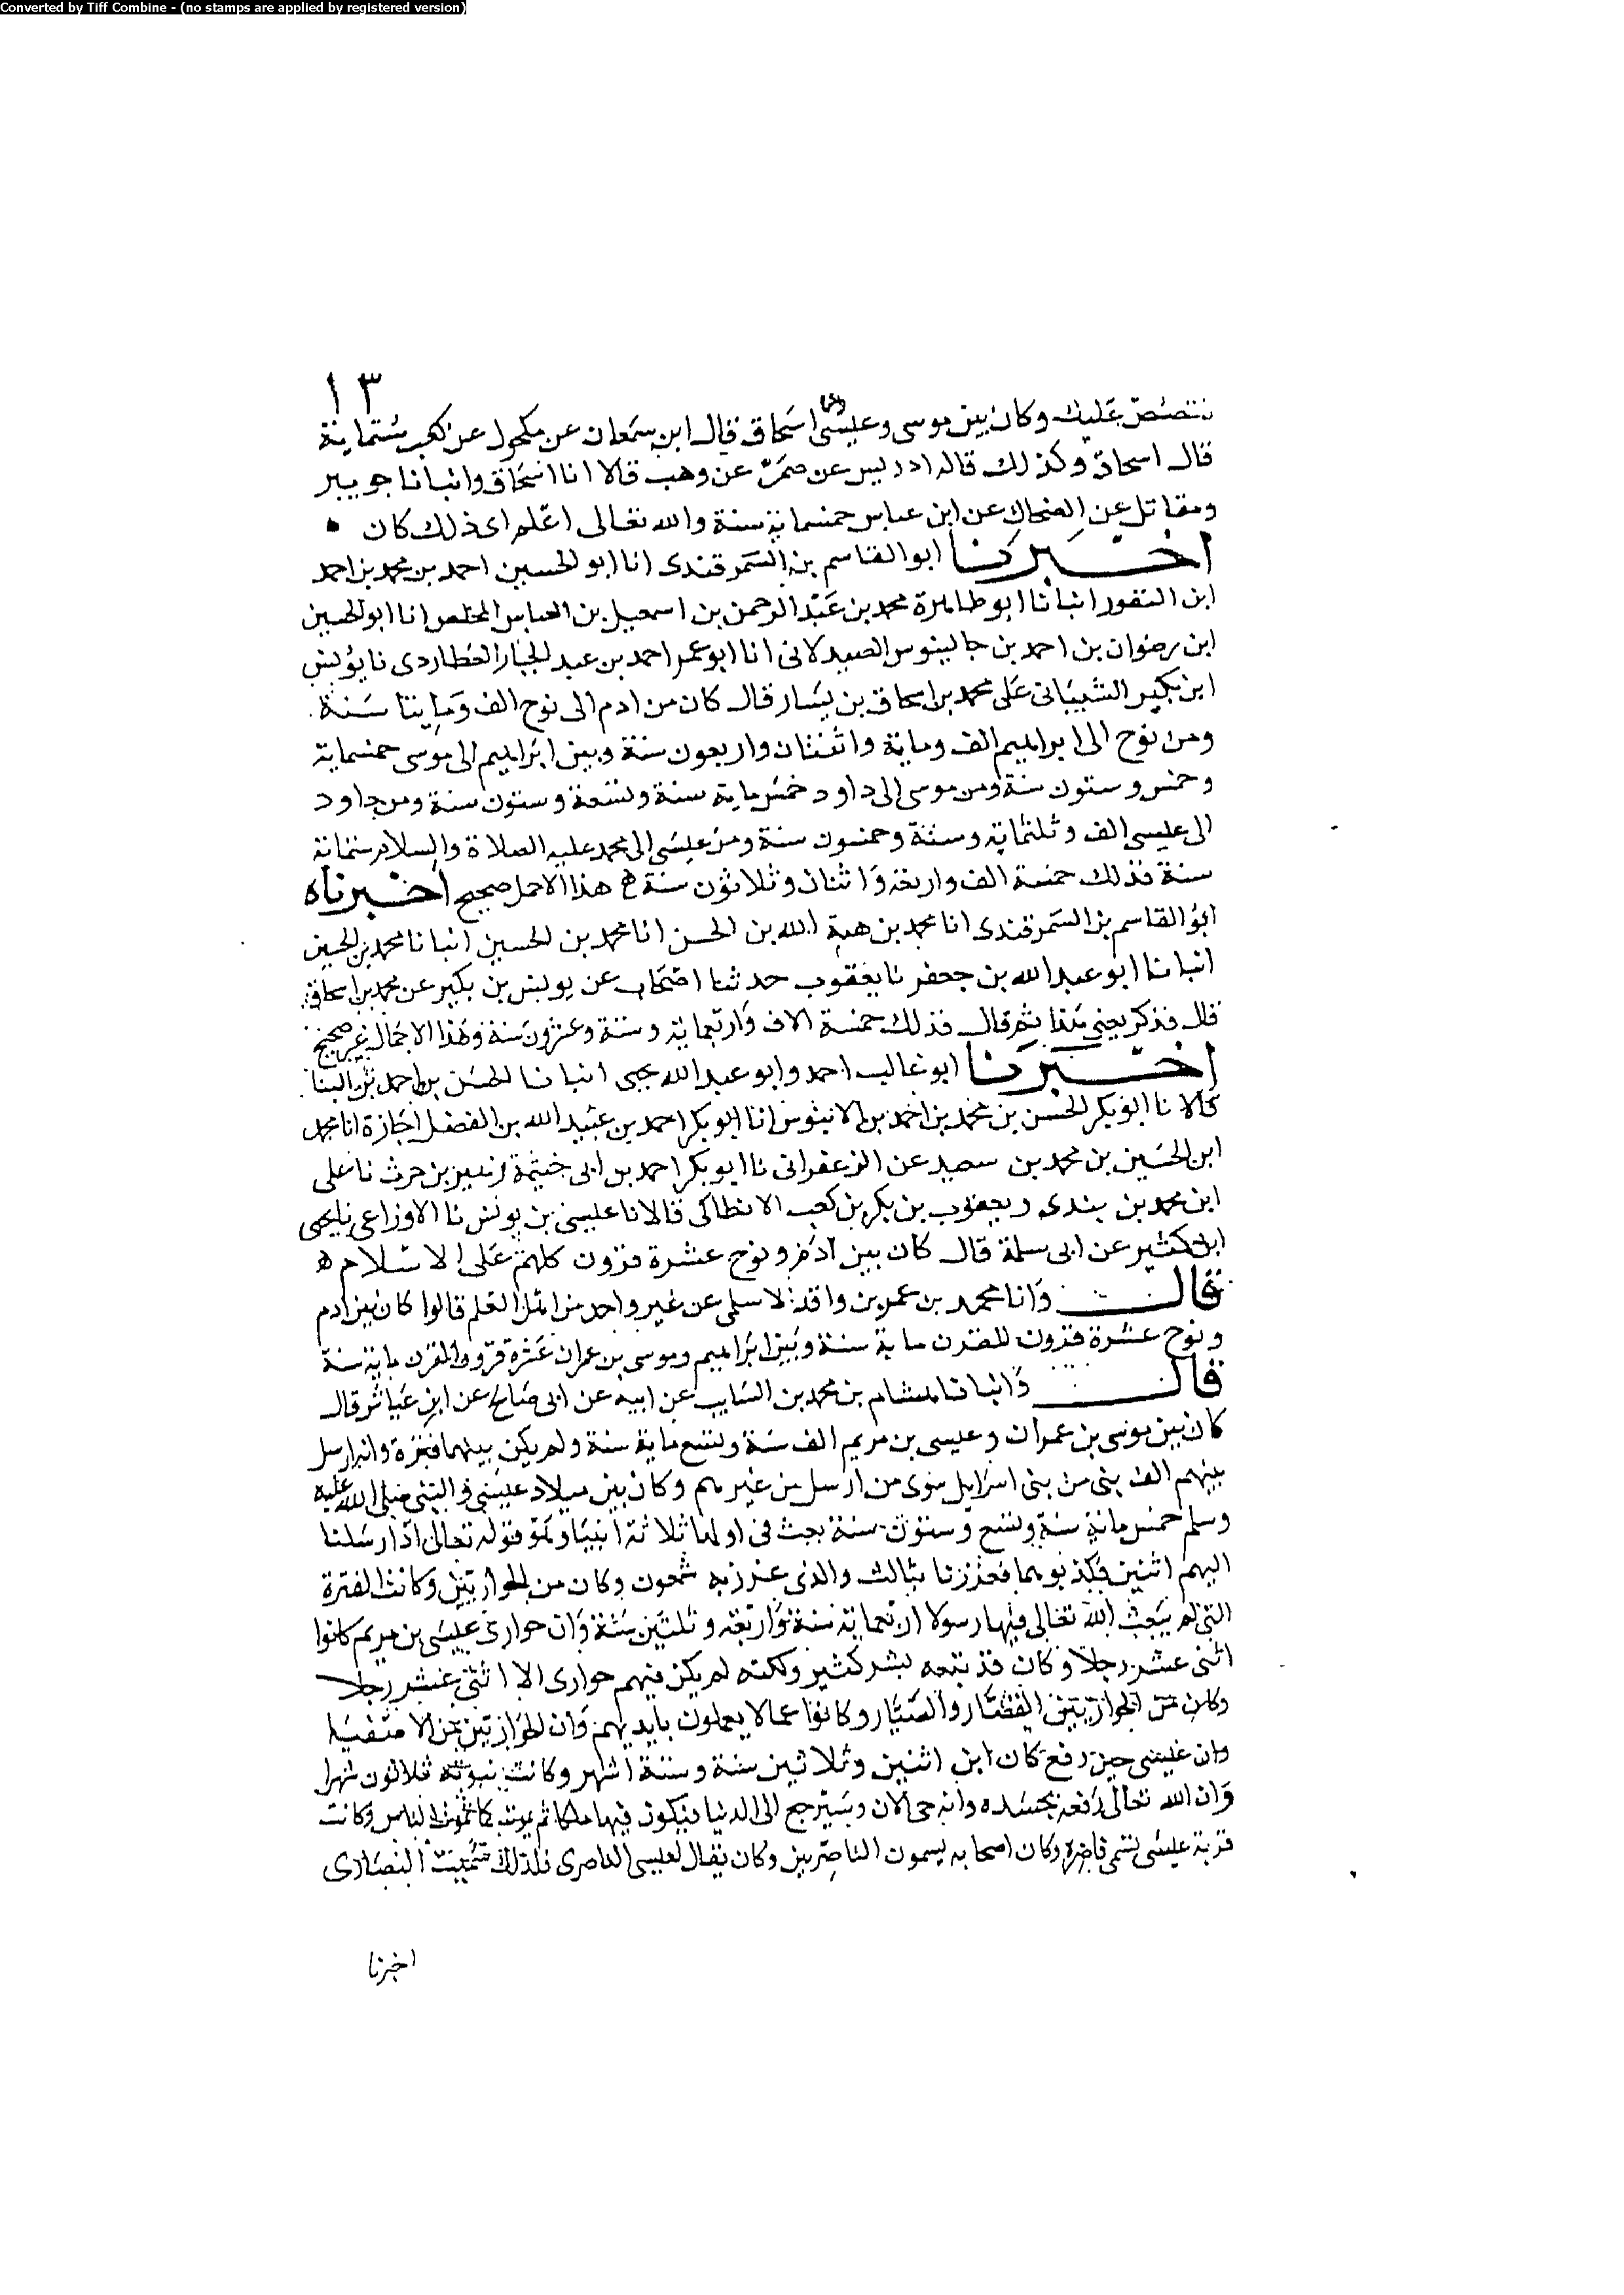 Converted by Tiff Combine - (no stamps are applied by registered version)
١٣
نقصص عليك وكان بين موسى وعيسى اسحاق قال ابن سمعان عن مكحول عن كعب ستماية
قال اسحاق وكذلك قاله ادريس عن وهب قالا انا اسحاق وانبانا جويبر
ومقاتل عن الضحاك عن ابن عباس خمسماية سنة والله تعالى اعلم اى ذلك كان
اخبرنا ابو القاسم بن السمرقندى انا ابو الحسين احمد بن محمد بن احمد
ابن النقور انبانا ابو طاهرة محمد بن عبد الرحمن بن اسمعيل بن العباس المخلص انا ابو الحسين
ابن رضوان بن احمد بن جالينوس الصيدلانى انا ابو عمر احمد بن عبد الجبار العطاردى نا يونس
ابن بكير الشيبانى على محمد بن اسحاق بن يسار قال كان من ادم الى نوح الف ومايتا سنة
ومن نوح الى ابراهيم الف وماية واثنتان واربعون سنة وبين ابراهيم الى موسى خمسماية
وخمس وستون سنة ومن موسى الى داود خمس ماية سنة وتسعة وستون سنة ومن داود
الى عيسى الف وثلثماية وستة وخمسون سنة ومن عيسى الى محمد عليه الصلاة والسلام ستماية
سنة فذلك خمسة الف واربعة واثنان وثلاثون سنة هذا الاصل صحيح اخبرناه
ابو القاسم بن السمرقندى انا محمد بن هبة الله بن الحسن انا محمد بن الحسين انبانا محمد بن الحسين
انبانا ابو عبد الله بن جعفر نا يعقوب حدثنا اصحاب عن يونس بن بكير عن محمد بن اسحاق
قال فذكر يعنى هذا ثم قال فذلك خمسة الاف واربعماية وستة وعشرون سنة وهذا الاجمال غير صحيح
اخبرنا ابو غالب احمد وابو عبد الله يحيى انبانا الحسن بن احمد بن البنا
قالا نا ابو بكر الحسن بن محمد بن احمد بن الابنوس انا ابو بكر احمد بن عبيد الله بن الفضل اجازة انا محمد
ابن الحسين بن محمد بن سعيد عن الزعفرانى نا ابو بكر احمد بن ابى خيثمة زهير بن حرث نا على
ابن محمد بن بندى ويعقوب بن بكر بن كعب الانطاكى قالا نا عيسى بن يونس نا الاوزاعى نا يحيى
ابن كثير عن ابى سلمة قال كان بين ادم ونوح عشرة قرون كلهم على الاسلام
قال وانا محمد بن عمر بن واقد الاسلمى عن غير واحد من اهل العلم قالوا كان بين ادم
ونوح عشرة قرون للقرن ماية سنة وبين ابراهيم وموسى بن عمران عشرة قرون والقرن ماية سنة
قال وانبانا هشام بن محمد بن السايب عن ابيه عن ابى صالح عن ابن عباس قال
كان بين موسى بن عمران وعيسى بن مريم الف سنة وتسع ماية سنة ولم يكن بينهما فترة وانه ارسل
بينهم الف نبى من بنى اسرايل سوى من ارسل من غيرهم وكان بين ميلاد عيسى والنبى صلى الله عليه
وسلم خمس ماية سنة وتسع وستون سنة بعث فى اولها ثلاثة انبيا وهو قوله تعالى اذ ارسلنا
اليهم اثنين فكذبوهما فعززنا بثالث والذى عزز به شمعون وكان من الحواريين وكانت الفترة
التى لم يبعث الله تعالى فيها رسولا اربعماية سنة واربعة وثلثين سنة وان حوارى عيسى بن مريم كانوا
اثنى عشر رجلا وكان قد تبعه بشر كثير ولكنه لم يكن فيهم حوارى الا اثنى عشر رجلا
وكان من الحواريين القصار والصياد وكانوا عمالا يعملون بايديهم وان الحواريين هم الاصفيا
وان عيسى حين رفع كان ابن اثنين وثلاثين سنة وستة اشهر وكانت نبوته ثلاثون شهرا
وان الله تعالى رفعه بجسده وانه حى الان وسيرجع الى الدنيا فيكون فيها ملكا ثم يموت كما تموت الناس وكانت
قرية عيسى تسمى ناصرة وكان اصحابه يسمون الناصريين وكان يقال لعيسى الناصرى فلذلك سميت النصارى
اخبرنا